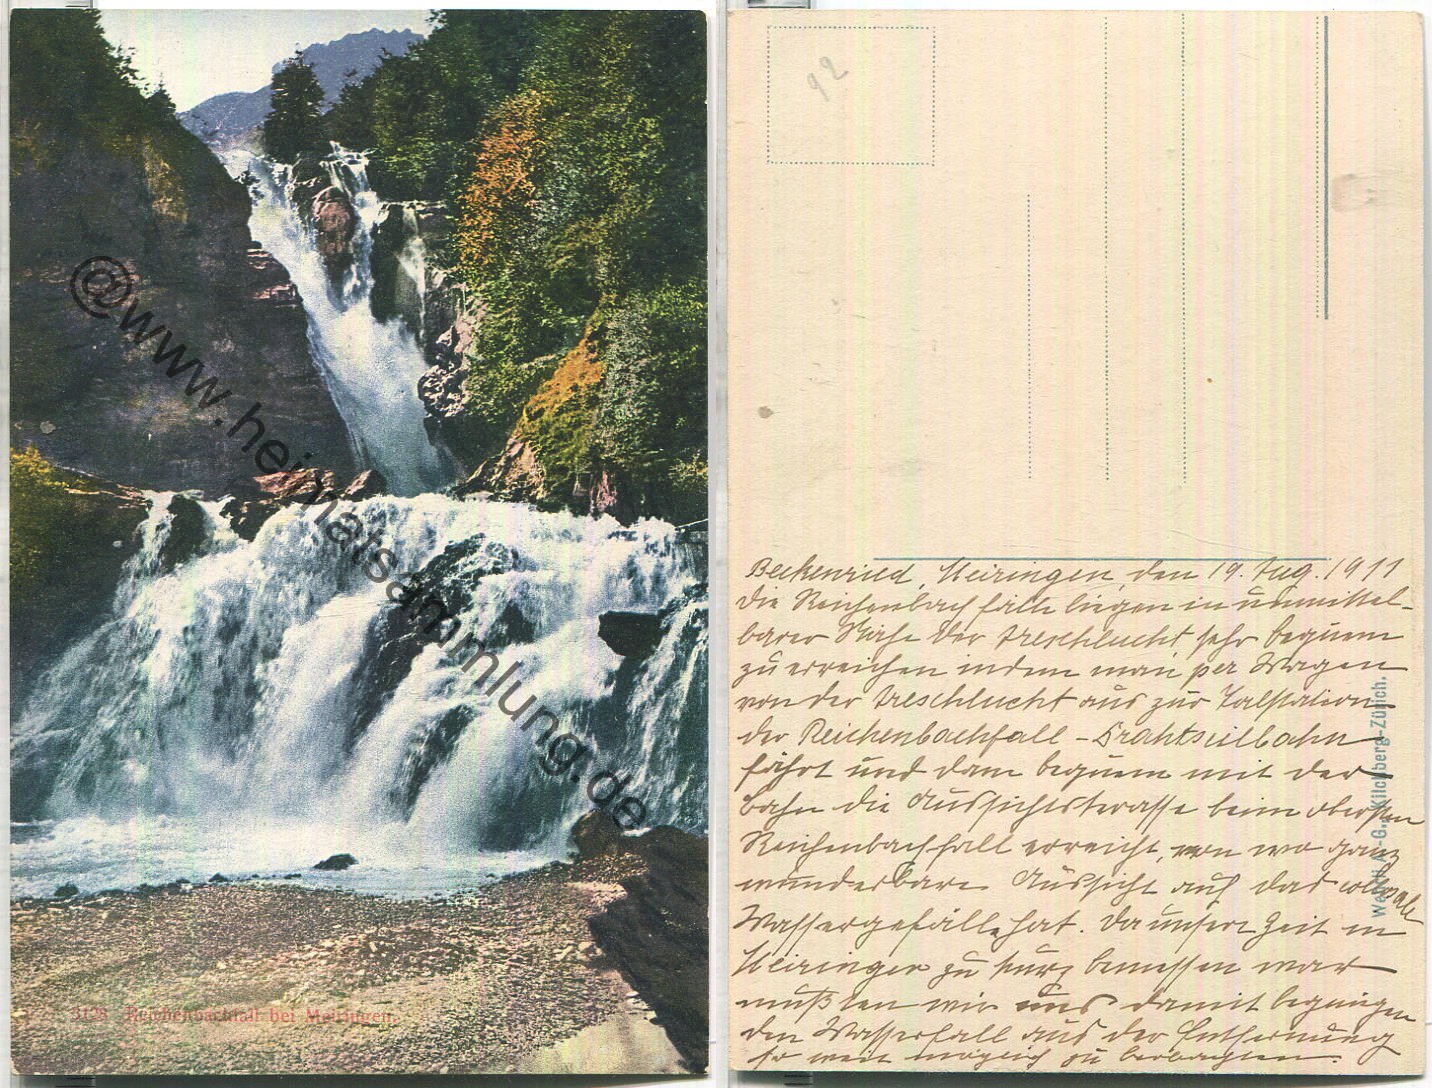 @www.heimatsammlung.de
3128 Reichenbachfall bei Meiringen.
92
Wehrli A.-G., Kilchberg-Zürich.
Beckenried, Meiringen, den 19. Aug. 1911
Die Reichenbachfälle liegen in unmittel-
barer Nähe der Areschlucht, sehr bequem
zu erreichen indem man per Wagen
von der Areschlucht aus zur Talstation
der Reichenbachfall-Drahtseilbahn
fährt und dann bequem mit der
bahn die Aussichtsterrasse beim obersten
Reichenbachfall erreicht, von wo ganz
wunderbare Aussicht auf das collosale
Wassergefälle hat. Da unsere Zeit in
Meiringen zu kurz bemessen war
mußten wir uns damit begnügen
den Wasserfall aus der Entfernung
so weit möglich zu